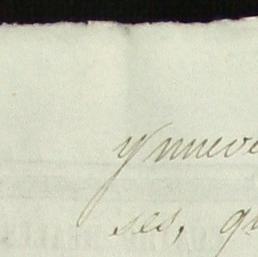 y nueve
ses, qu